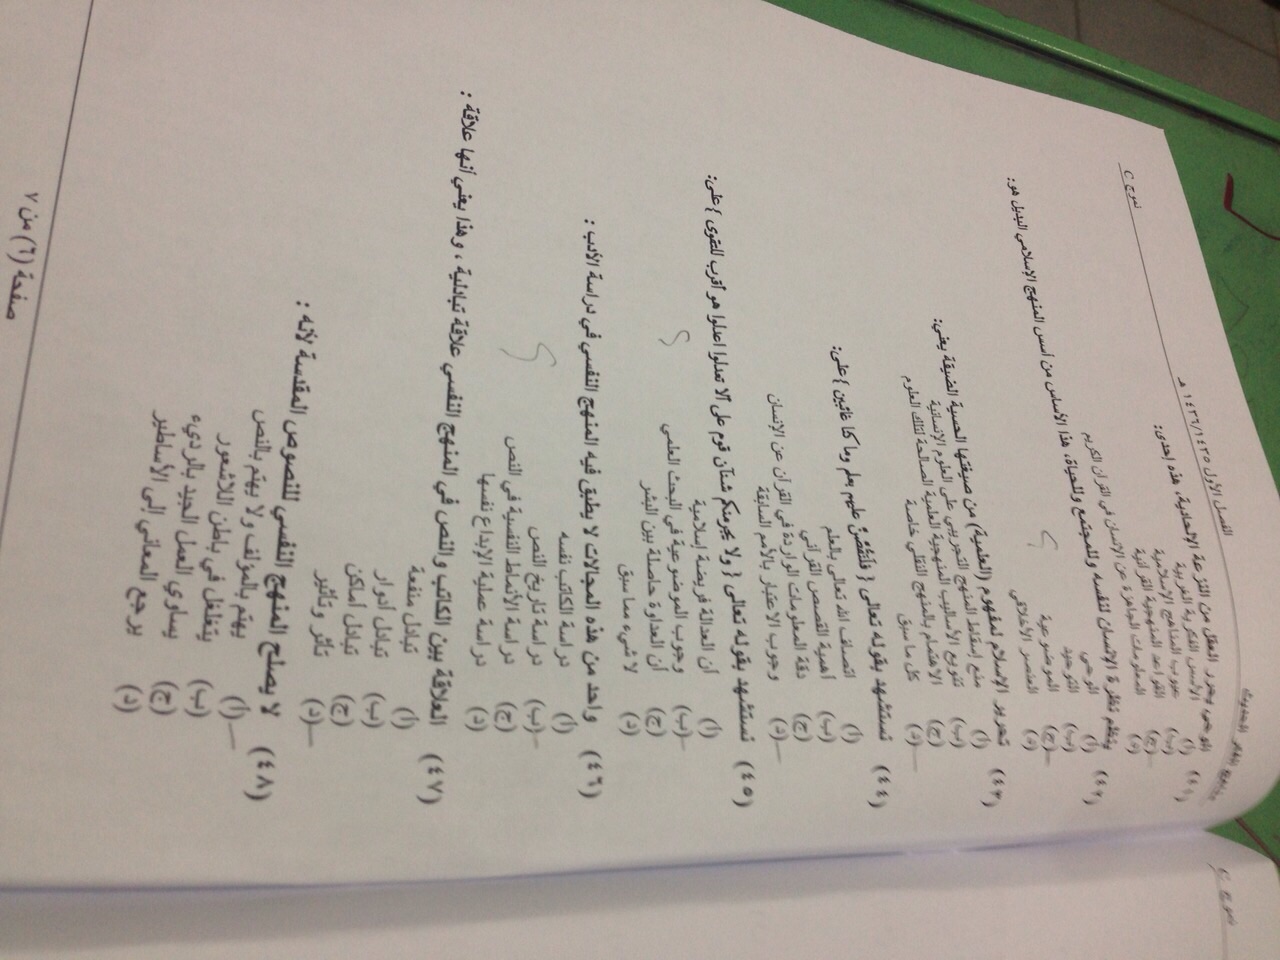 مناهج البحث الحديثة
الفصل الأول ١٤٣٦/١٤٣٥ هـ
نموذج C
(٤١) الوحي يحرر العقل من النزعة الإلحادية، هذه إحدى:
(أ) الأسس الفكرية الغربية
(ب) عيوب المناهج الإسلامية
(ج) القواعد المنهجية القرآنية
(د) المعلومات الجاهزة عن الإنسان في القرآن الكريم
(٤٢) ينظم نظرة الإنسان لنفسه وللمجتمع وللحياة، هذا الأساس من أسس المنهج الإسلامي البديل هو:
(أ) الوحي
(ب) التوحيد
(ج) الموضوعية
(د) العنصر الأخلاقي
(٤٣) تحرير الإسلام لمفهوم (العلمية) من صيغتها الحسية الضيقة يعني:
(أ) منع إسقاط المنهج التجريبي على العلوم الإنسانية
(ب) تنويع الأساليب المنهجية العلمية الصالحة لتلك العلوم
(ج) الاهتمام بالمنهج النقلي خاصة
(د) كل ما سبق
(٤٤) نستشهد بقوله تعالى { فلنقصن عليهم بعلم وما كنا غائبين } على:
(أ) اتصاف الله تعالى بالعلم
(ب) أهمية القصص القرآني
(ج) دقة المعلومات الواردة في القرآن عن الإنسان
(د) وجوب الاعتبار بالأمم السابقة
(٤٥) نستشهد بقوله تعالى { ولا يجرمنكم شنآن قوم على ألا تعدلوا اعدلوا هو أقرب للتقوى } على:
(أ) أن العدالة فريضة إسلامية
(ب) وجوب الموضوعية في البحث العلمي
(ج) أن العداوة حاصلة بين البشر
(د) لا شيء مما سبق
(٤٦) واحد من هذه المجالات لا يطبق فيه المنهج النفسي في دراسة الأدب :
(أ) دراسة الكاتب نفسه
(ب) دراسة تاريخ النص
(ج) دراسة الأنماط النفسية في النص
(د) دراسة عملية الإبداع نفسها
(٤٧) العلاقة بين الكاتب والنص في المنهج النفسي علاقة تبادلية ، وهذا يعني أنها علاقة :
(أ) تبادل منفعة
(ب) تبادل أدوار
(ج) تبادل أماكن
(د) تأثر وتأثير
(٤٨) لا يصلح المنهج النفسي للنصوص المقدسة لأنه :
(أ) يهتم بالمؤلف ولا يهتم بالنص
(ب) يتغلغل في باطن اللاشعور
(ج) يساوي العمل الجيد بالرديء
(د) يرجع المعاني إلى الأساطير
صفحة (٦) من ٧
نموذج C